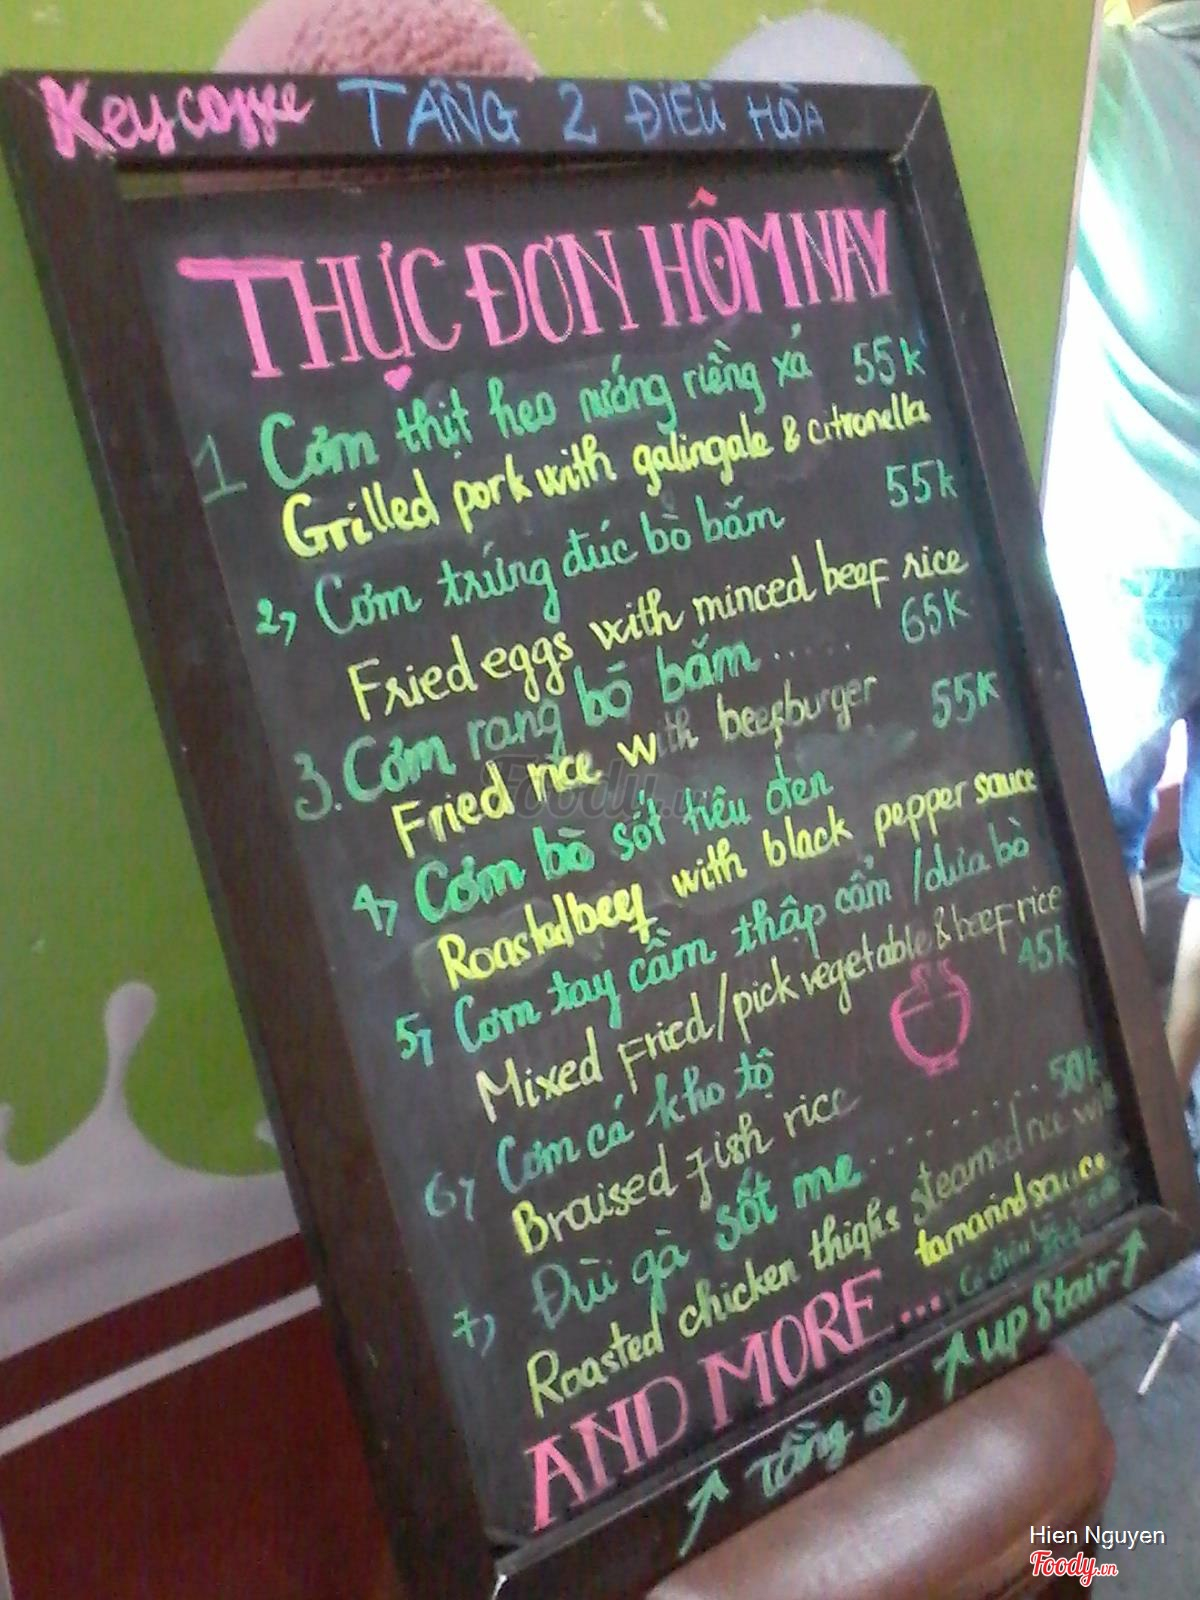 Key coffee TẦNG 2 ĐIỀU HÒA
THỰC ĐƠN HÔM NAY
1 Cơm thịt heo nướng riềng xả 55k
Grilled pork with galingale & citronella
2, Cơm trứng đúc bò băm 55k
Fried eggs with minced beef rice
3. Cơm rang bò băm ...... 65k
Fried rice with beefburger
4, Cơm bò sốt tiêu đen 55k
Roasted beef with black pepper sauce
5, Cơm tay cầm thập cẩm / dưa bò
Mixed Fried/pick vegetable & beef rice
6, Cơm cá kho tộ 45k
Braised fish rice
7, Đùi gà sốt me ........ 50k
Roasted chicken thighs steamed rice with
tamarind sauce
AND MORE ...
Tầng 2 up stair
Foody.vn
Hien Nguyen
Foody.vn